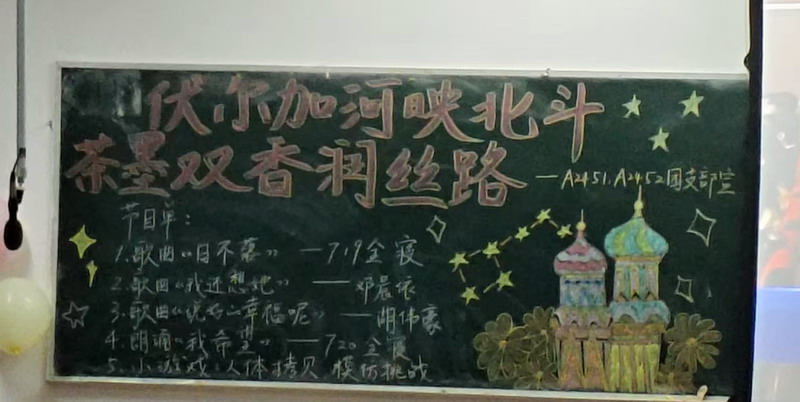 伏尔加河映北斗
茶墨双香润丝路
—A2451.A2452团支部宣
节目单：
1.歌曲“日不落” —719全寝
2.歌曲“我还想她” —邓晨依
3.歌曲“说好的幸福呢” —胡伟豪
4.朗诵“我希望” —720全寝
5.小游戏：人体拷贝 模仿挑战